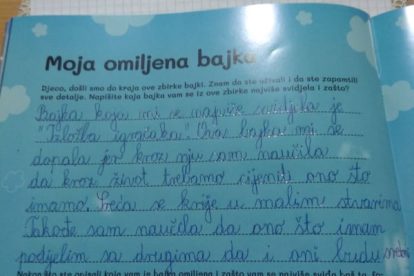 Moja omiljena bajka
Djeco, došli smo do kraja ove zbirke bajki. Znam da ste uživali i da ste zapamtili
sve detalje. Napišite koja bajka vam se iz ove zbirke najviše svidjela i zašto?
Bajka koja mi se najviše svidjela je
"Izložba igračaka". Ova bajka mi se
dopala jer kroz nju sam naučila
da kroz život trebamo cijeniti ono što
imamo. Sreća se krije u malim stvarima
Takođe sam naučila da ono što imam
podijelim sa drugima da i oni budu sretni
Nakon što ste opisali koja vam je bajka omiljena i zašto vam se najviše svidjela